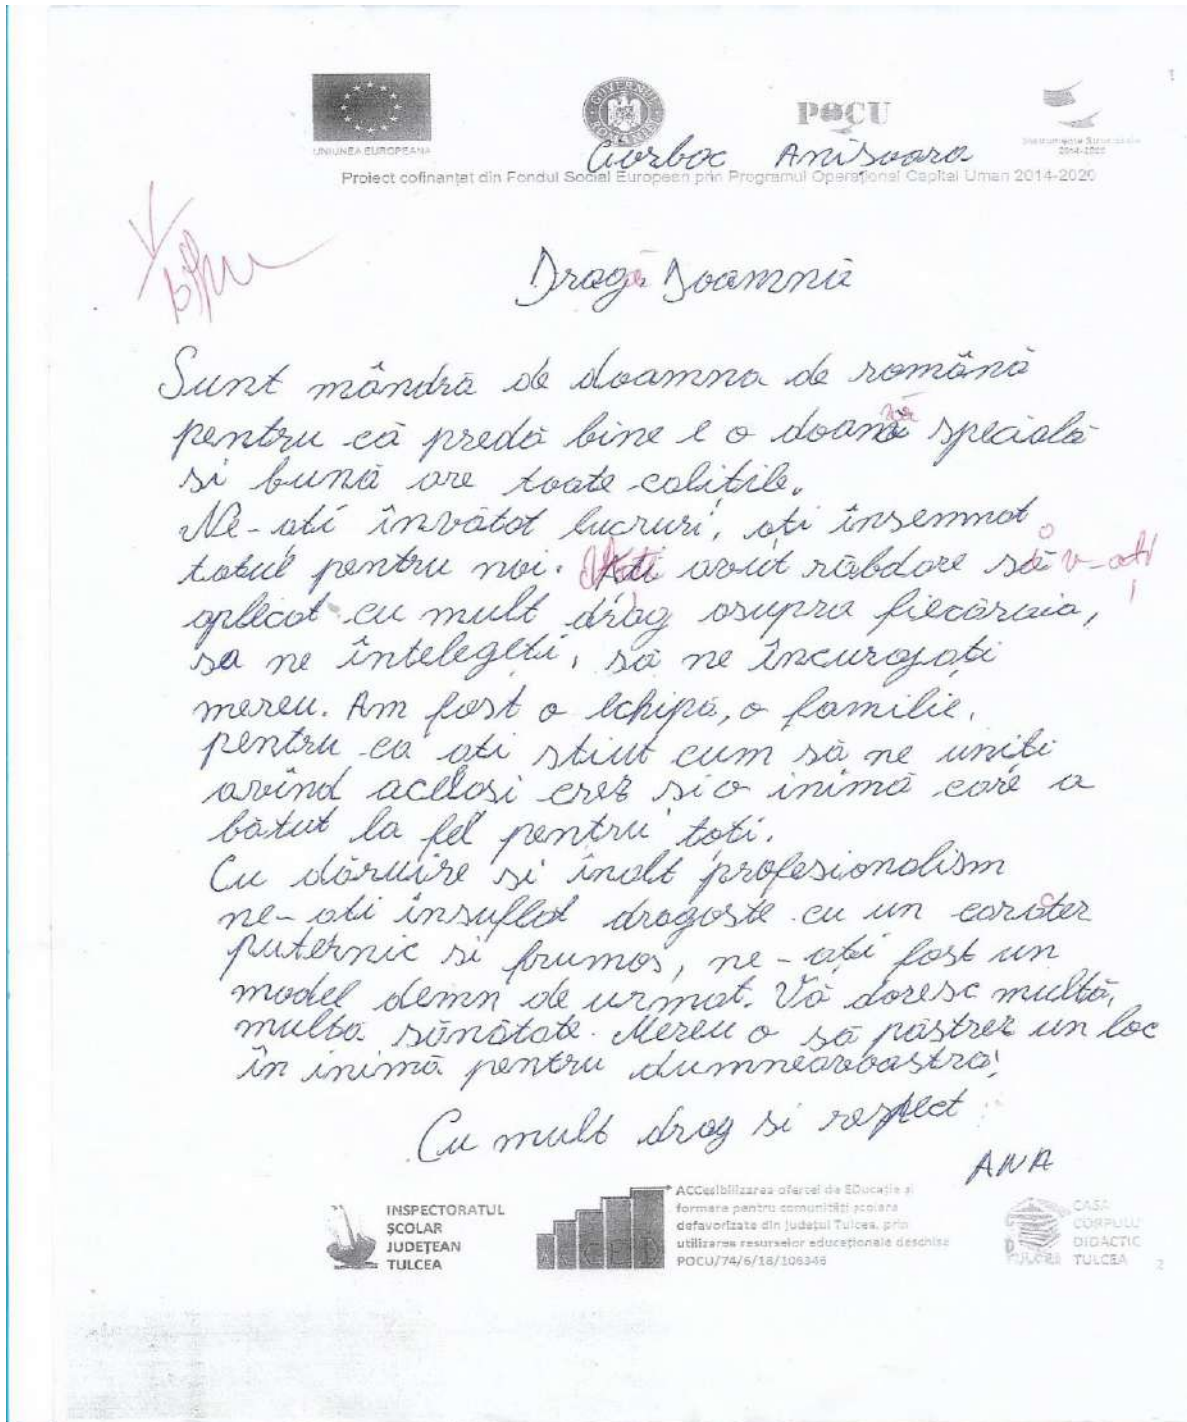 1
UNIUNEA EUROPEANĂ
GUVERNUL ROMÂNIEI
POCU
Instrumente Structurale
2014-2020
Ciorboc Anisoara
Proiect cofinanțat din Fondul Social European prin Programul Operațional Capital Uman 2014-2020
Dragă Doamnă
Sunt mândră de doamna de română
pentru că predă bine e o doană specială
si bună are toate calitile.
Ne-ati învătat lucruri, ati însemnat
totul pentru noi. Ati avut răbdare să v-ați
aplecat cu mult drag asupra fiecăraia,
sa ne întelegeti, să ne încurajati
mereu. Am fost o echipă, o familie,
pentru ca ati stiut cum să ne uniti
avînd acelasi crez si o inimă care a
bătut la fel pentru toti.
Cu dăruire si înalt profesionalism
ne-ati insuflat dragoste cu un caracter
puternic si frumos, ne-ati fost un
model demn de urmat. Vă doresc multă,
multă sănătate. Mereu o să păstrez un loc
în inimă pentru dumneavoastră!
Cu mult drag si respect
ANA
INSPECTORATUL
ȘCOLAR
JUDEȚEAN
TULCEA
ACCED
ACCesibilizarea ofertei de EDucație și
formare pentru comunități școlare
defavorizate din județul Tulcea, prin
utilizarea resurselor educaționale deschise
POCU/74/6/18/106346
CASA
CORPULUI
DIDACTIC
TULCEA
2